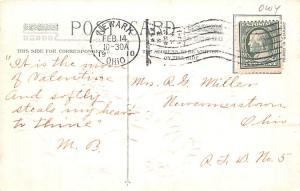 OWY
POST CARD
THIS SIDE FOR CORRESPONDENCE
ON THIS SIDE
NEWARK
FEB. 14
10-30A
19 10
OHIO
"It is the
of Valentine
And softly
steals my heart
to thine"
M. B.
Mrs. A. G. Miller
Newcomerstown
Ohio
R. F. D. No. 5